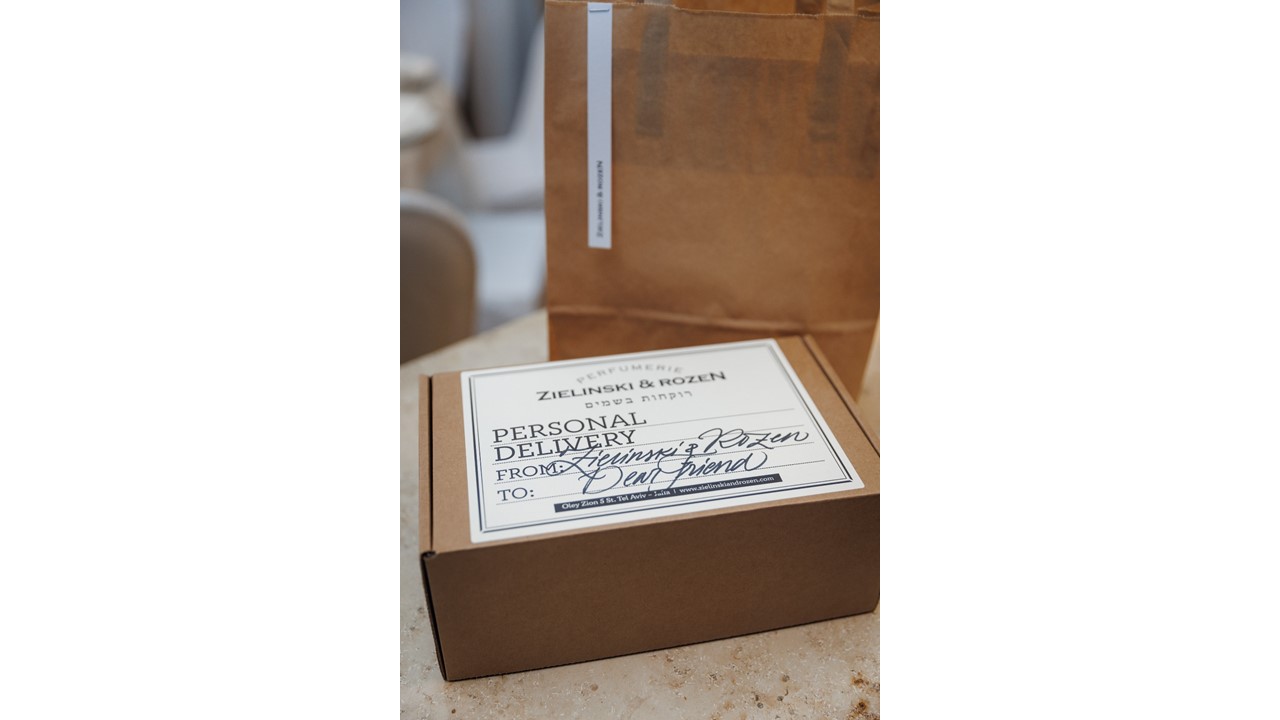 ZIELINSKI & ROZEN
PERFUMERIE
ZIELINSKI & ROZEN
רוקחות בשמים
PERSONAL
DELIVERY
FROM: Zielinski & Rozen
TO: Dear friend
Oley Zion 5 St. Tel Aviv - Jaffa | www.zielinskiandrozen.com